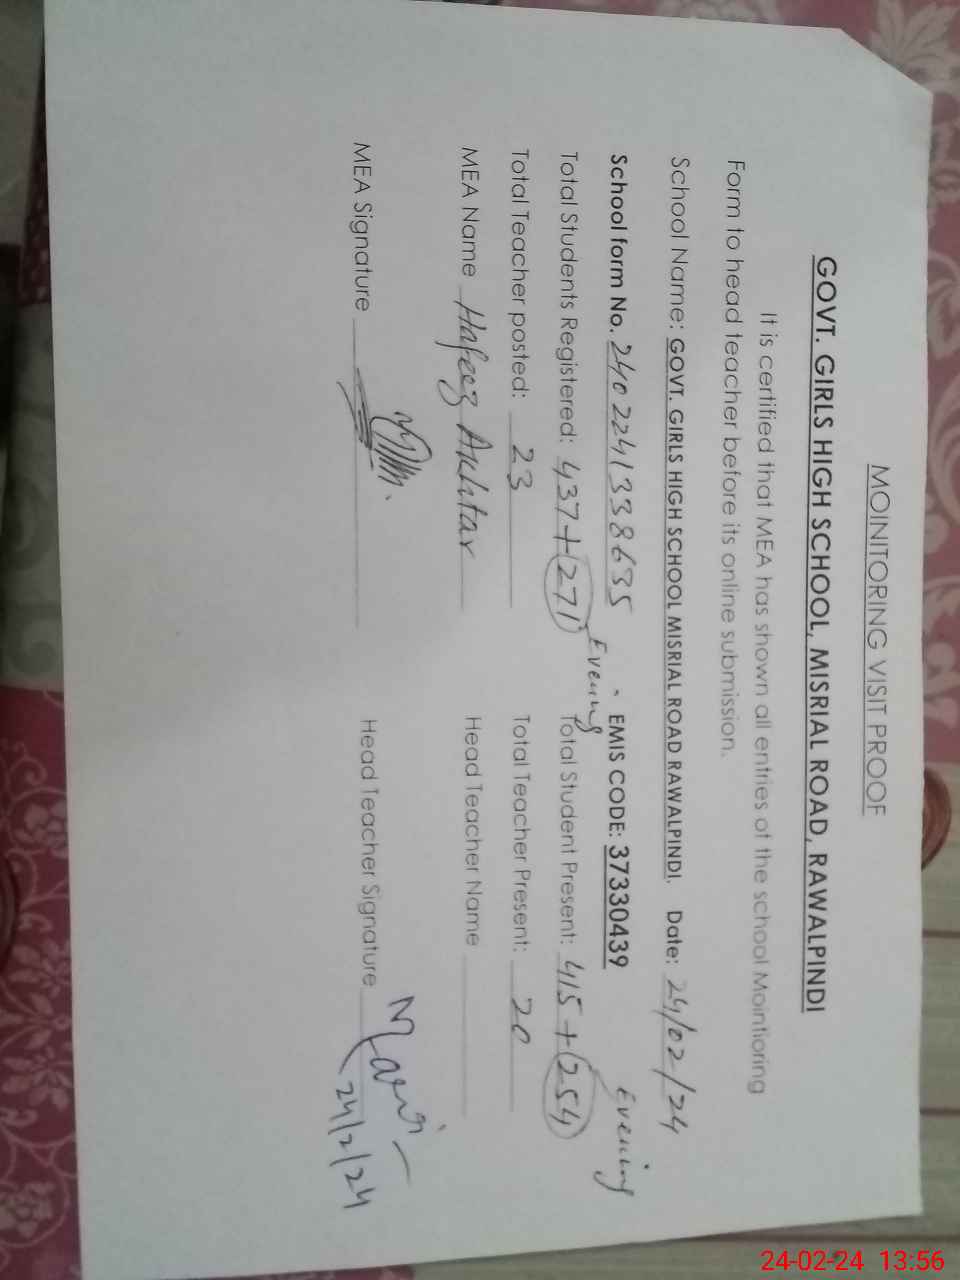 MOINITORING VISIT PROOF
GOVT. GIRLS HIGH SCHOOL, MISRIAL ROAD, RAWALPINDI
It is certified that MEA has shown all entries of the school Mointioring
Form to head teacher before its online submission.
School Name: GOVT. GIRLS HIGH SCHOOL MISRIAL ROAD RAWALPINDI. Date: 24/02/24
School form No. 24022413386 35 EMIS CODE: 37330439
Evening Evening
Total Students Registered: 437+271 Total Student Present: 415+254
Total Teacher posted: 23 Total Teacher Present: 20
MEA Name Hafeez Akhtar Head Teacher Name
MEA Signature Head Teacher Signature
24/2/24
24-02-24 13:56